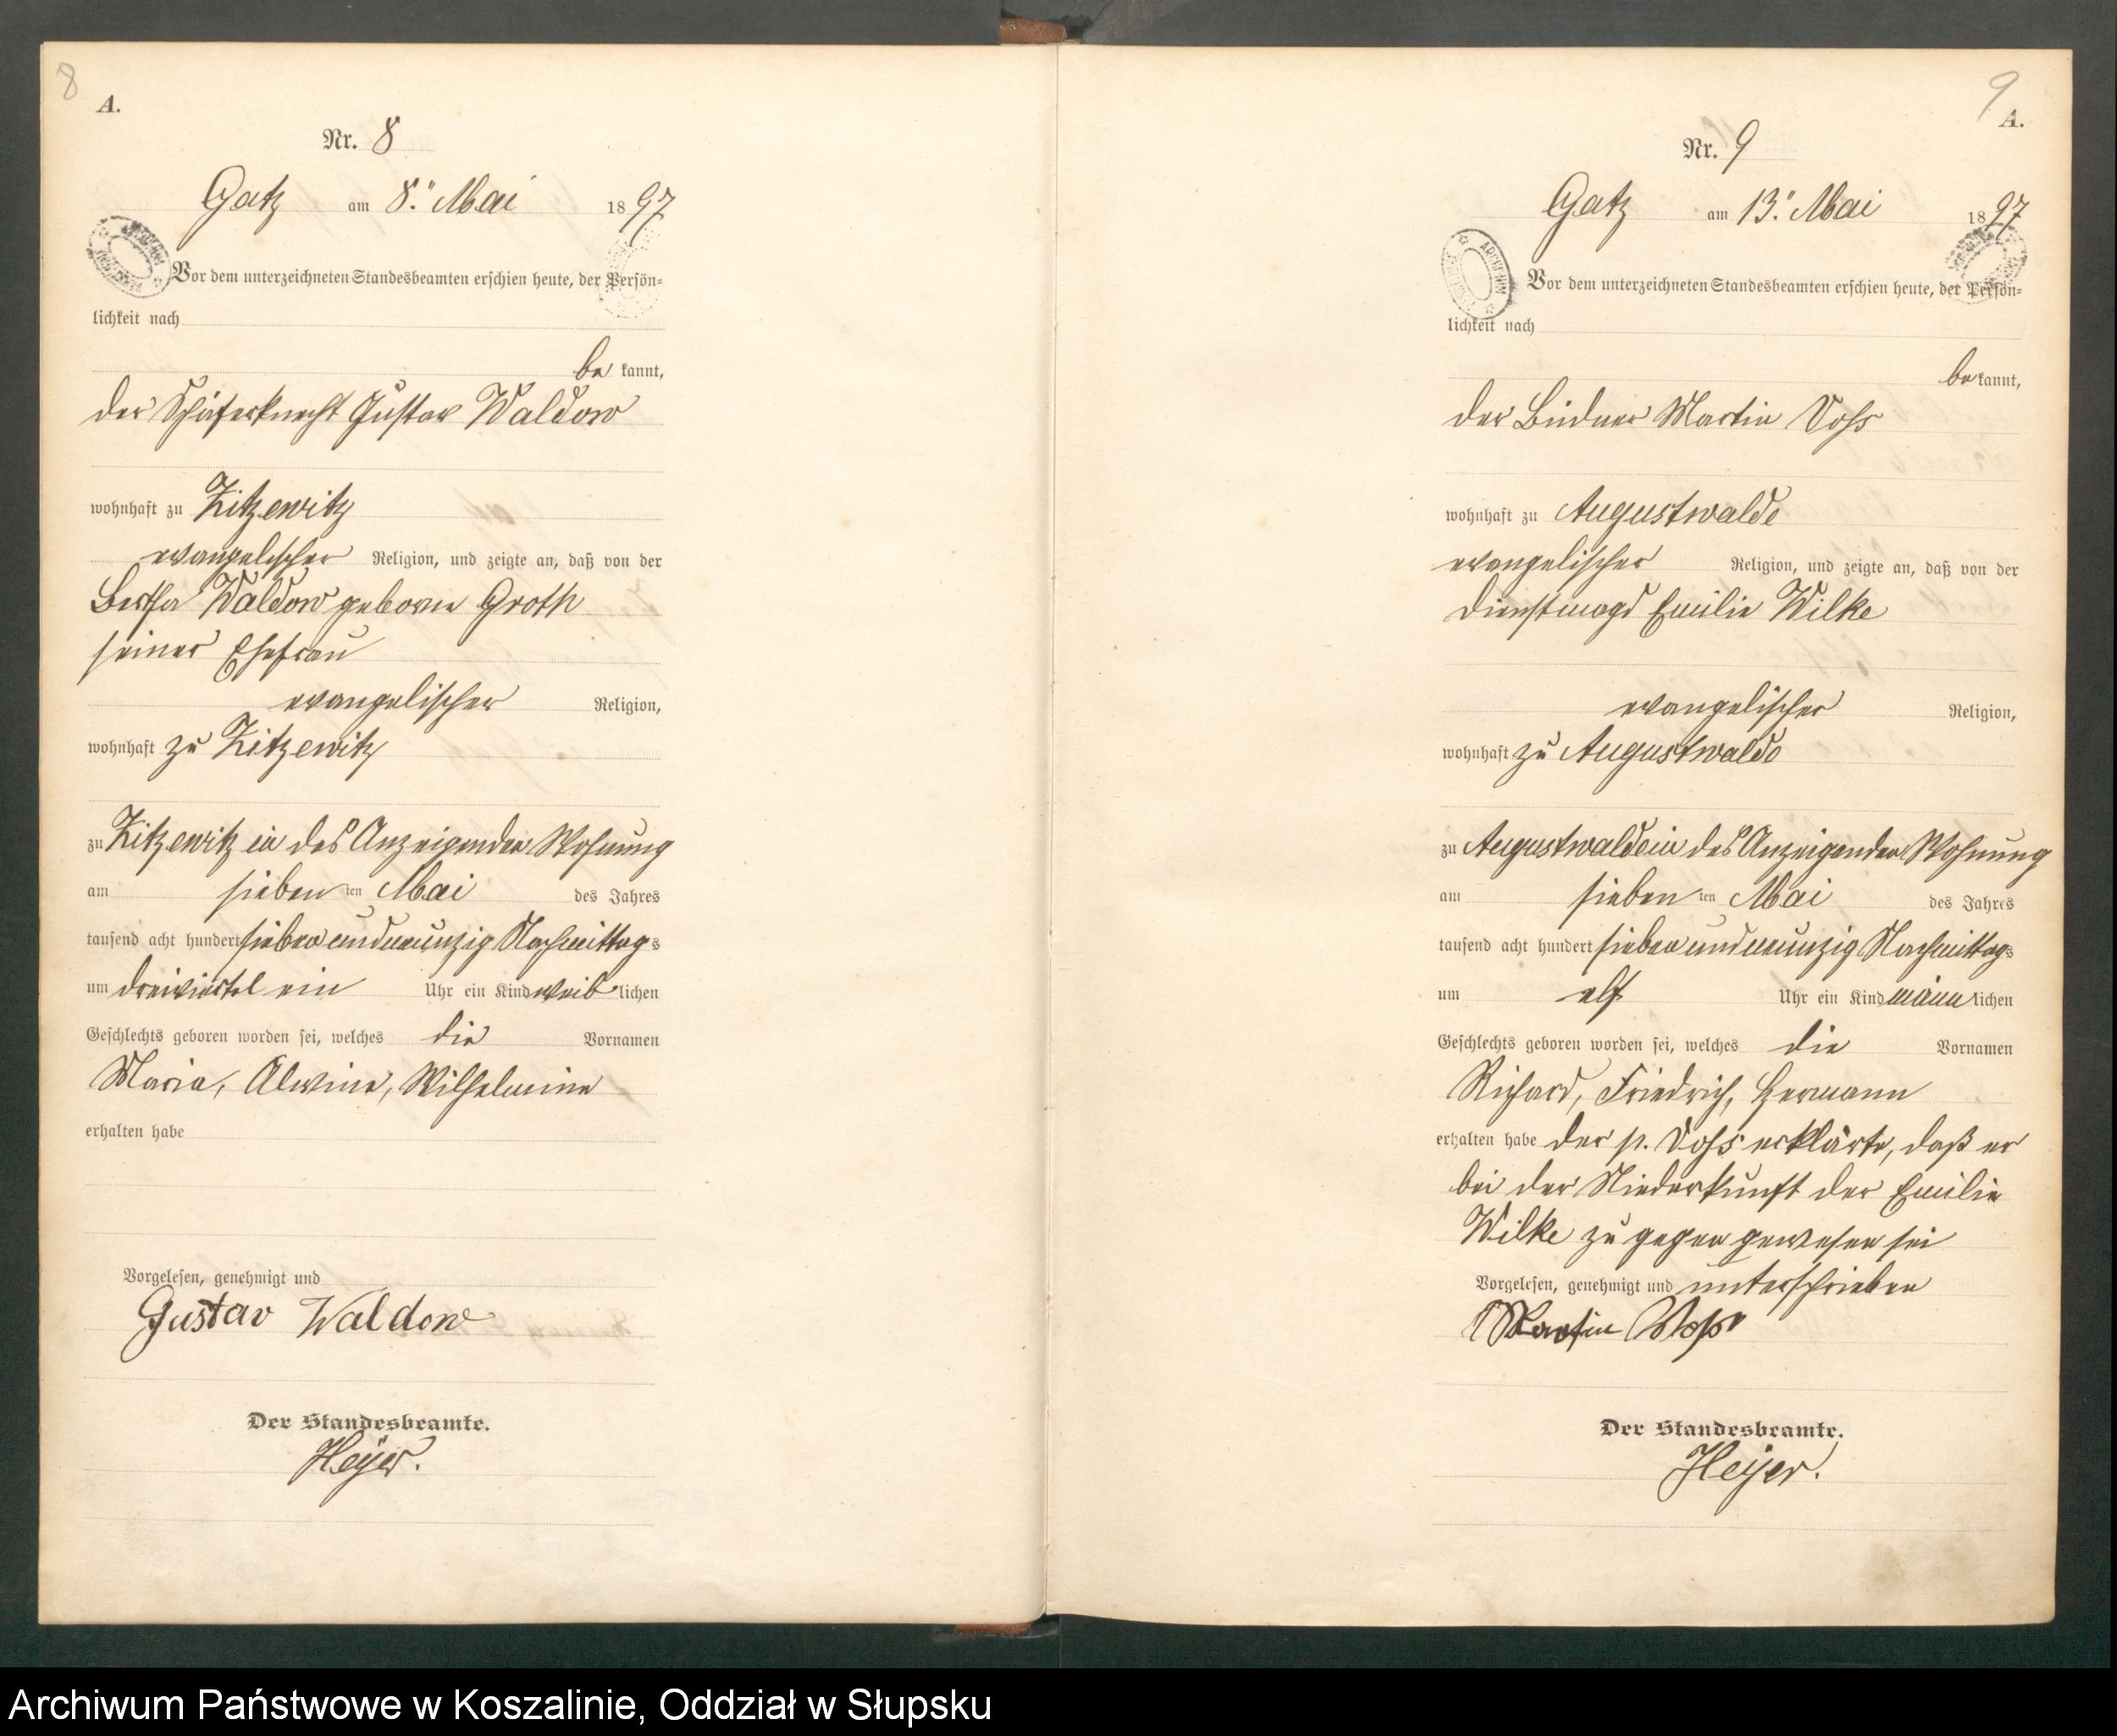 8
A.
Nr. 8
Gatz am 8. Mai 1897
Vor dem unterzeichneten Standesbeamten erschien heute, der Persön-
lichkeit nach
be kannt,
der Schäferknecht Gustav Waldow
wohnhaft zu Zitzewitz
evangelischer Religion, und zeigte an, daß von der
Bertha Waldow geborne Groth
seiner Ehefrau
evangelischer Religion,
wohnhaft zu Zitzewitz
zu Zitzewitz in des Anzeigenden Wohnung
am sieben ten Mai des Jahres
tausend acht hundert sieben und neunzig Nachmittag s
um dreiviertel ein Uhr ein Kind weib lichen
Geschlechts geboren worden sei, welches die Vornamen
Maria, Alwine, Wilhelmine
erhalten habe
Vorgelesen, genehmigt und
Gustav Waldow
Der Standesbeamte.
Heyer.
9
A.
Nr. 9
Gatz am 13. Mai 1897
Vor dem unterzeichneten Standesbeamten erschien heute, der Persön-
lichkeit nach
be kannt,
der Büdner Martin Voss
wohnhaft zu Augustwalde
evangelischer Religion, und zeigte an, daß von der
Dienstmagd Emilie Wilke
evangelischer Religion,
wohnhaft zu Augustwalde
zu Augustwalde in des Anzeigenden Wohnung
am sieben ten Mai des Jahres
tausend acht hundert sieben und neunzig Nachmittag s
um elf Uhr ein Kind männ lichen
Geschlechts geboren worden sei, welches die Vornamen
Richard, Friedrich, Hermann
erhalten habe der p. Voss erklärte, daß er
bei der Niederkunft der Emilie
Wilke zu gegen gewesen sei
Vorgelesen, genehmigt und unterschrieben
Martin Voss
Der Standesbeamte.
Heyer.
Archiwum Państwowe w Koszalinie, Oddział w Słupsku